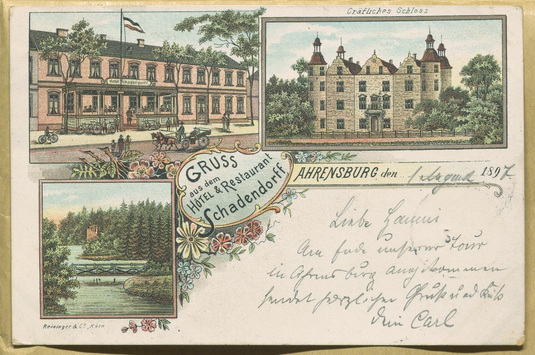 Gräfliches Schloss
GRUSS
aus dem
HÔTEL & Restaurant
Schadendorff
AHRENSBURG den 1 August 1897
Liebe Hanni
Am Ende unserer Tour
in Ahrensburg angekommen
sendet herzlichen Gruß und Kuß
Dein Carl
Reisinger & Co, Köln